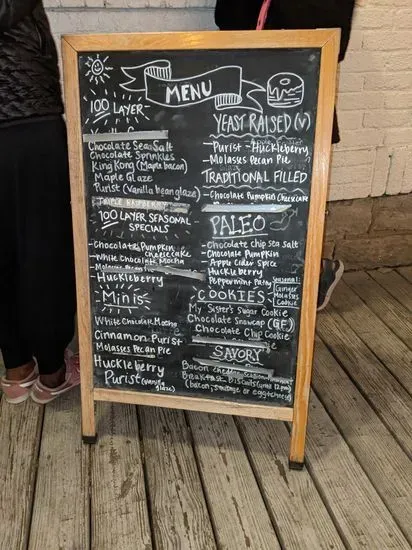 MENU
100 LAYER
Chocolate Sea Salt
Chocolate Sprinkles
King Kong (Maple bacon)
Maple Glaze
Purist (Vanilla bean glaze)
TRIPLE RASPBERRY
100 LAYER SEASONAL
SPECIALS
-Chocolate Pumpkin
cheesecake
-White Chocolate Mocha
-Molasses Pecan Pie
-Huckleberry
Minis
White Chocolate Mocha
Cinnamon Purist
Molasses Pecan Pie
Huckleberry
Purist (vanilla
glaze)
YEAST RAISED (V)
- Purist -Huckleberry
- Molasses Pecan Pie
TRADITIONAL FILLED
-Chocolate Pumpkin Cheesecake
PALEO
-Chocolate chip sea salt
-Chocolate Pumpkin
-Apple Cider Spice
-Huckleberry
-Peppermint Patty
Seasonal:
Ginger
Molasses
Cookie
COOKIES
My Sister's Sugar Cookie
Chocolate Snowcap (GF)
Chocolate Chip Cookie
SAVORY
Bacon cheddar
Breakfast Biscuits (until 12pm)
(bacon, sausage or egg+cheese)